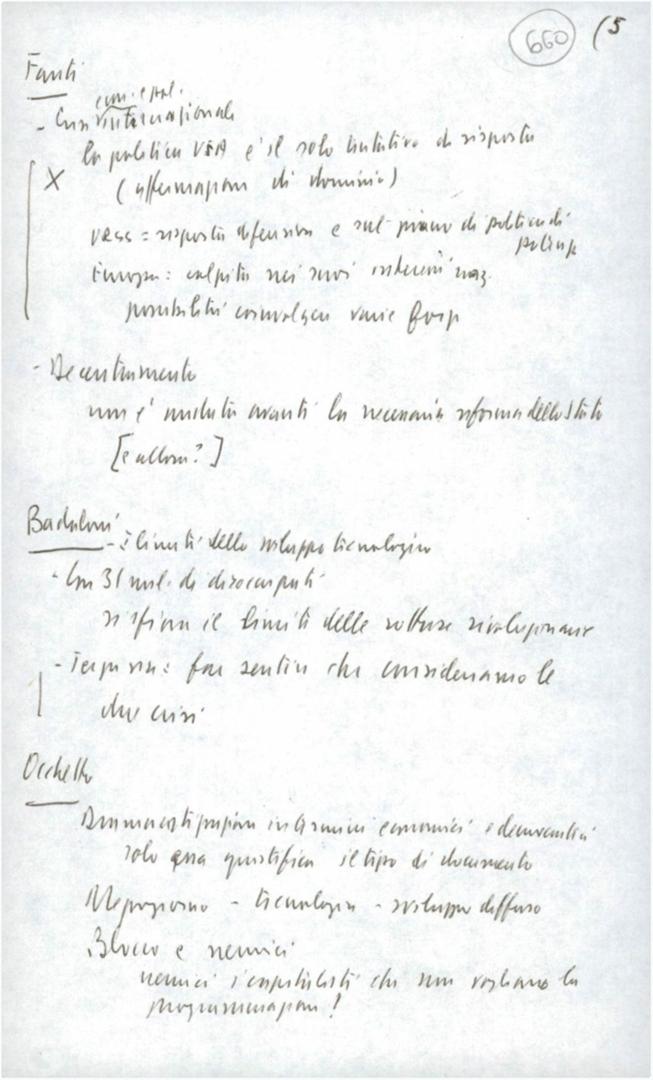 660 (5
Fanti
econ. e pol.
- Crisi internazionale
la politica USA è il solo tentativo di risposta
X (affermazione di dominio)
URSS = risposta difensiva e sul piano di politica di
Europa: colpita nei suoi interessi naz.
possibilità coinvolgere varie forze
- Decentramento
non è andata avanti la necessaria riforma dello Stato
[e allora?]
Badaloni
- I limiti dello sviluppo tecnologico
- Con 31 mil. di disoccupati
si sfiora il limite delle rotture rivoluzionarie
- far sentire che consideriamo le
due crisi
Occhetto
in termini economici e democratici
solo essa giustifica il tipo di documento
Mezzogiorno - tecnologia - sviluppo diffuso
Blocco e nemici
nemici i capitalisti che non vogliono la
programmazione!